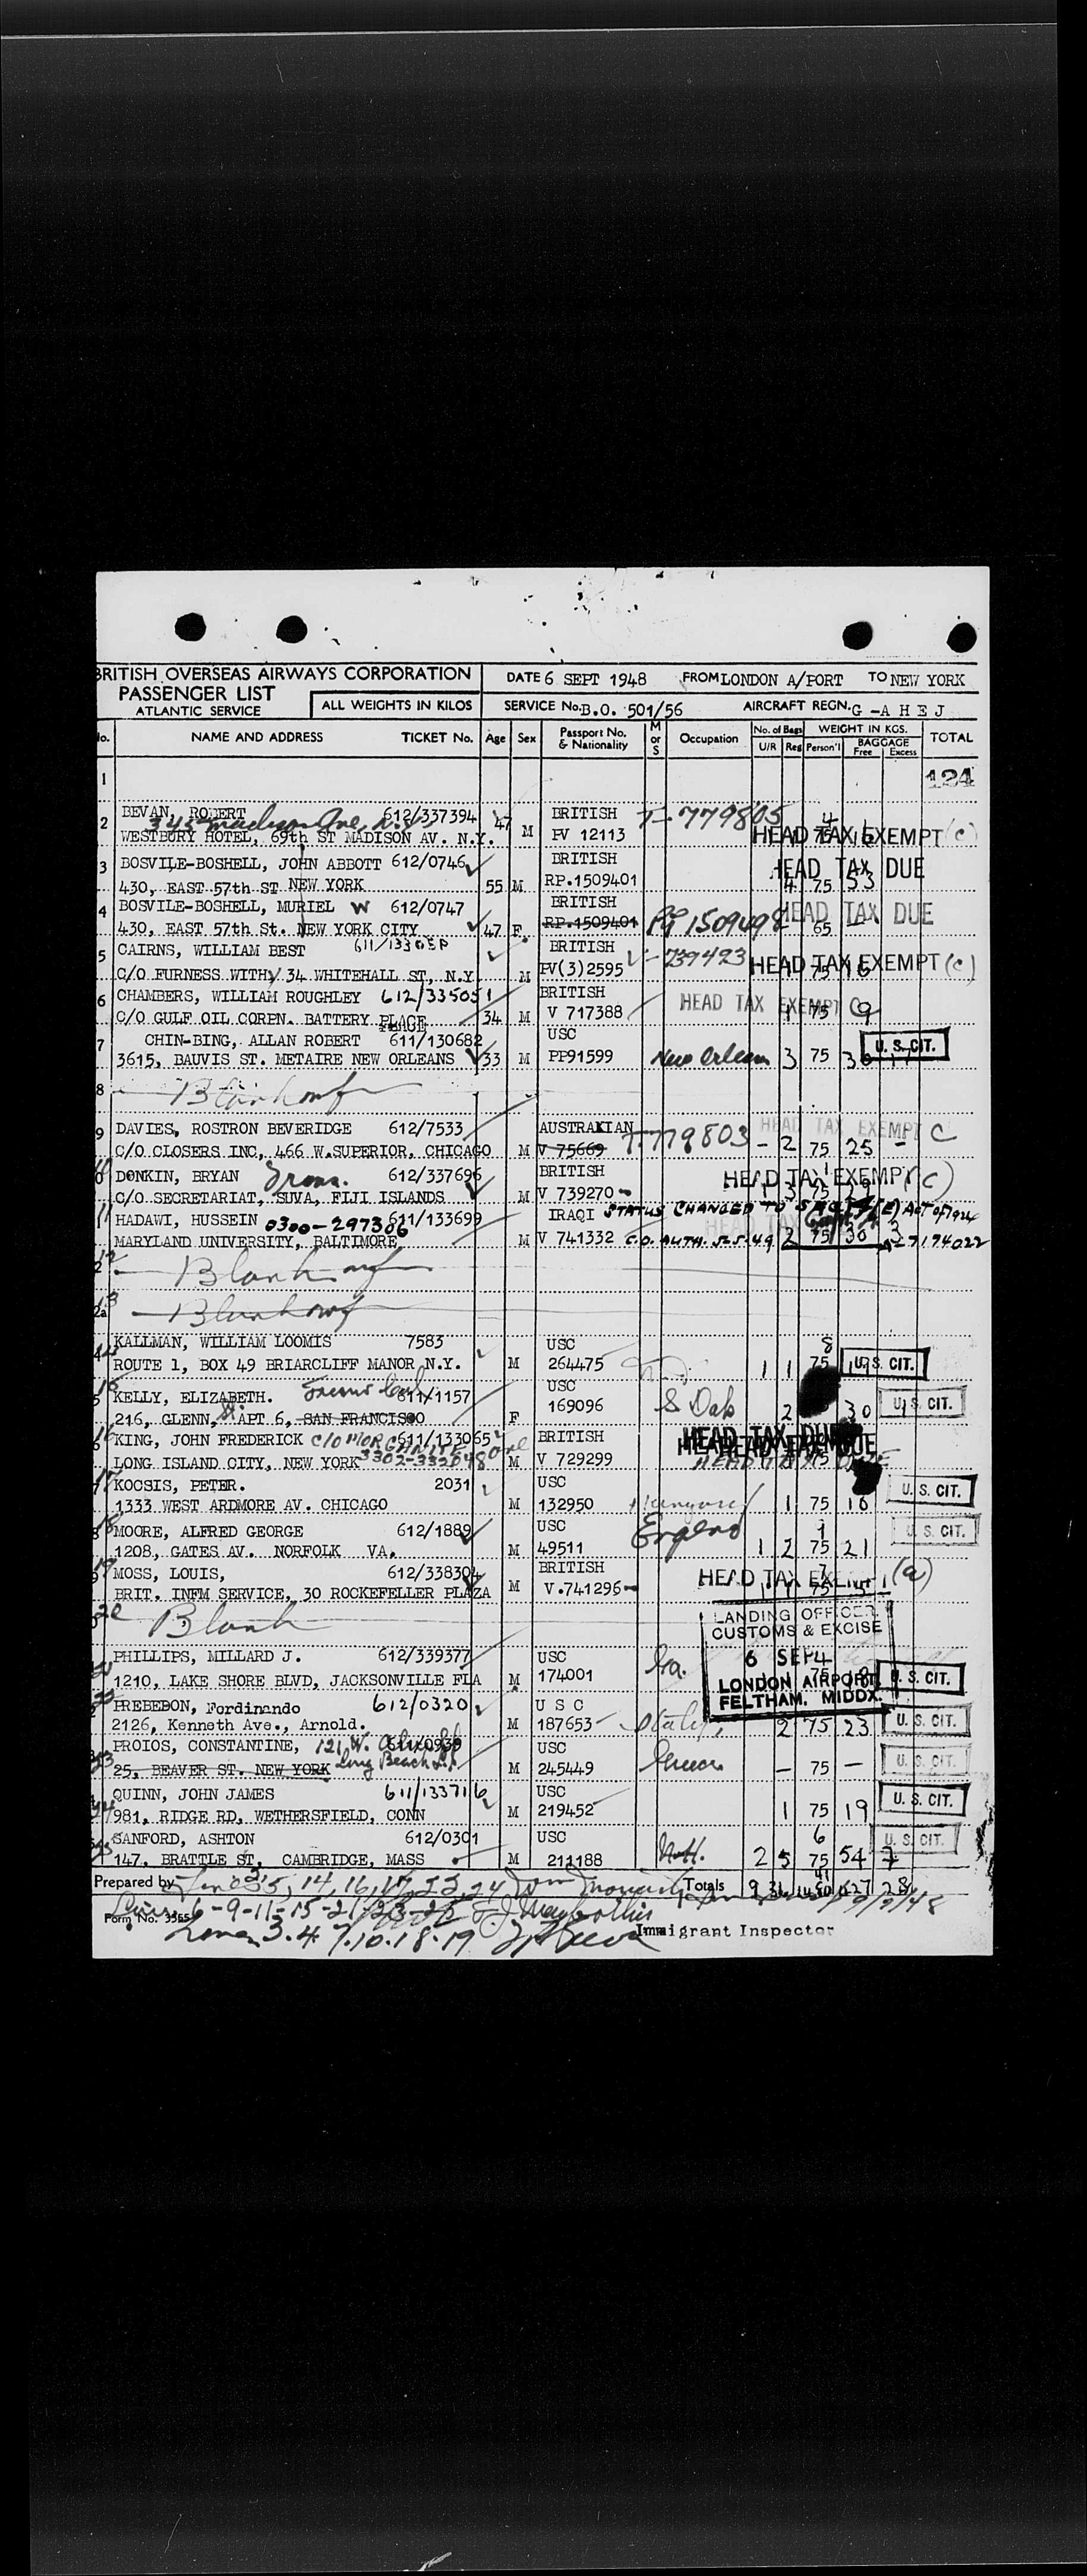 BRITISH OVERSEAS AIRWAYS CORPORATION
PASSENGER LIST
ATLANTIC SERVICE
ALL WEIGHTS IN KILOS
DATE 6 SEPT 1948 FROM LONDON A/PORT TO NEW YORK
SERVICE No. B.O. 501/56 AIRCRAFT REGN. G-AHEJ
No. NAME AND ADDRESS TICKET No. Age Sex Passport No. & Nationality M or S Occupation No. of Bags U/R Reg WEIGHT IN KGS. Person'l BAGGAGE Free Excess TOTAL
1 124
2 BEVAN, ROBERT 612/337394 47 M BRITISH T-779805
WESTBURY HOTEL, 69th ST MADISON AV. N.Y. PV 12113 HEAD TAX EXEMPT (C)
3 BOSVILE-BOSHELL, JOHN ABBOTT 612/0746 BRITISH HEAD TAX DUE
430, EAST 57th ST NEW YORK 55 M RP.1509401 4 75 53
4 BOSVILE-BOSHELL, MURIEL W 612/0747 BRITISH HEAD TAX DUE
430, EAST 57th St. NEW YORK CITY 47 F. RP.1509401 1509498 65
5 CAIRNS, WILLIAM BEST BRITISH V-739423
C/O FURNESS WITHY 34 WHITEHALL ST, N.Y. M PV(3)2595 HEAD TAX EXEMPT (C)
6 CHAMBERS, WILLIAM ROUGHLEY 612/335051 BRITISH
C/O GULF OIL CORPN. BATTERY PLACE 34 M V 717388 HEAD TAX EXEMPT C 1 75 9
7 CHIN-BING, ALLAN ROBERT 611/130682 USC
3615, BAUVIS ST. METAIRE NEW ORLEANS 33 M PP91599 New Orleans 3 75 30 U. S. CIT.
8
9 DAVIES, ROSTRON BEVERIDGE 612/7533 AUSTRALIAN T-779803 HEAD TAX EXEMPT C
C/O CLOSERS INC, 466 W.SUPERIOR, CHICAGO M V 75669 - 2 75 25 -
10 DONKIN, BRYAN Trans. 612/337696 BRITISH HEAD TAX EXEMPT (C)
C/O SECRETARIAT, SUVA, FIJI ISLANDS M V 739270
11 HADAWI, HUSSEIN 0300-297306 611/133699 IRAQI STATUS CHANGED TO ACT OF 1924
MARYLAND UNIVERSITY, BALTIMORE M V 741332 C.O. AUTH. 5-5-49 2 75 30 3 7174022
12 Blank
13 Blank
14 KALLMAN, WILLIAM LOOMIS 7583 USC 8
ROUTE 1, BOX 49 BRIARCLIFF MANOR N.Y. M 264475 1 1 75 19 U. S. CIT.
15 KELLY, ELIZABETH. 611/1157 USC
216, GLENN, APT 6, SAN FRANCISCO F 169096 S Dak 2 30 U. S. CIT.
16 KING, JOHN FREDERICK C/O MORGANITE 611/133065 BRITISH HEAD TAX DUE
LONG ISLAND CITY, NEW YORK M V 729299 HEAD TAX DUE
17 KOCSIS, PETER. 2031 USC U. S. CIT.
1333 WEST ARDMORE AV. CHICAGO M 132950 Hungary 1 75 16
18 MOORE, ALFRED GEORGE 612/1889 USC England U. S. CIT.
1208, GATES AV. NORFOLK VA. M 49511 1 2 75 21
19 MOSS, LOUIS, 612/338304 BRITISH HEAD TAX EXEMPT (a)
BRIT. INFM SERVICE, 30 ROCKEFELLER PLAZA M V.741296
20 Blank
LANDING OFFICER
CUSTOMS & EXCISE
6 SEP
LONDON AIRPORT
FELTHAM. MIDDX.
21 PHILLIPS, MILLARD J. 612/339377 USC
1210, LAKE SHORE BLVD, JACKSONVILLE FLA M 174001 Ga. 75 18 U. S. CIT.
22 PREBEDON, Ferdinando 612/0320 U S C
2126, Kenneth Ave., Arnold. M 187653 Italy 2 75 23 U. S. CIT.
23 PROIOS, CONSTANTINE, USC
25, BEAVER ST. NEW YORK Long Beach M 245449 Greece - 75 - U. S. CIT.
24 QUINN, JOHN JAMES 611/133716 USC
981, RIDGE RD, WETHERSFIELD, CONN M 219452 1 75 19 U. S. CIT.
25 SANFORD, ASHTON 612/0301 USC 6
147, BRATTLE ST, CAMBRIDGE, MASS M 211188 2 5 75 54 7 U. S. CIT.
Prepared by Totals 9 31 28
Form No. 3365
Immigrant Inspector